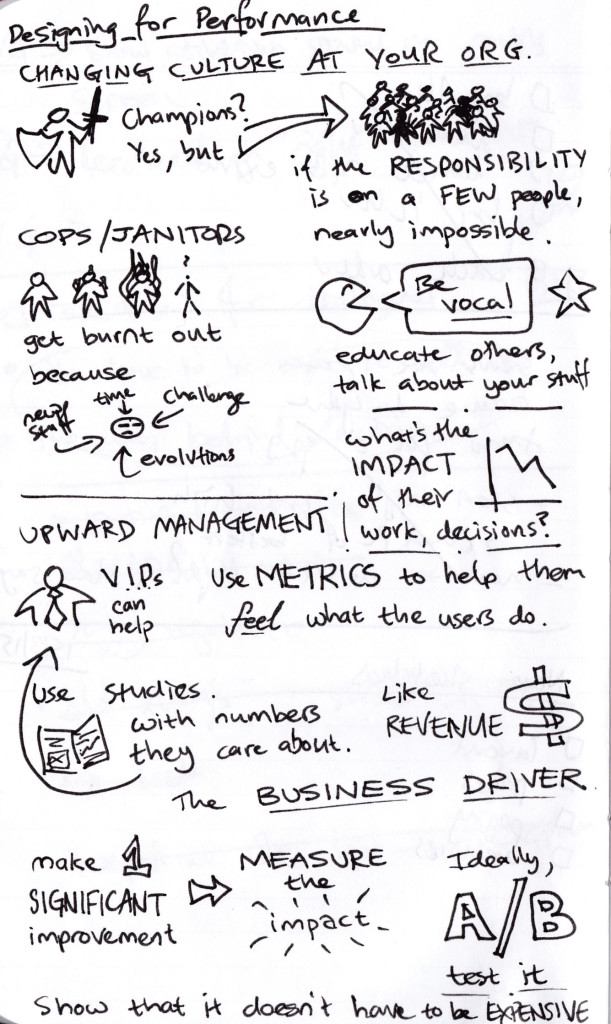 Designing for Performance
CHANGING CULTURE AT YOUR ORG.
Champions?
Yes, but
if the RESPONSIBILITY
is on a FEW people,
nearly impossible.
COPS/JANITORS
?
get burnt out
because
time
challenge
new stuff
evolutions
Be
vocal
educate others,
talk about your stuff
what's the
IMPACT
of their
work, decisions?
UPWARD MANAGEMENT
V.I.Ps
can
help
use METRICS to help them
feel what the users do.
use studies.
with numbers
they care about.
Like
REVENUE $
The BUSINESS DRIVER
make 1
SIGNIFICANT
improvement
MEASURE
the
impact
Ideally,
A/B
test it
Show that it doesn't have to be EXPENSIVE